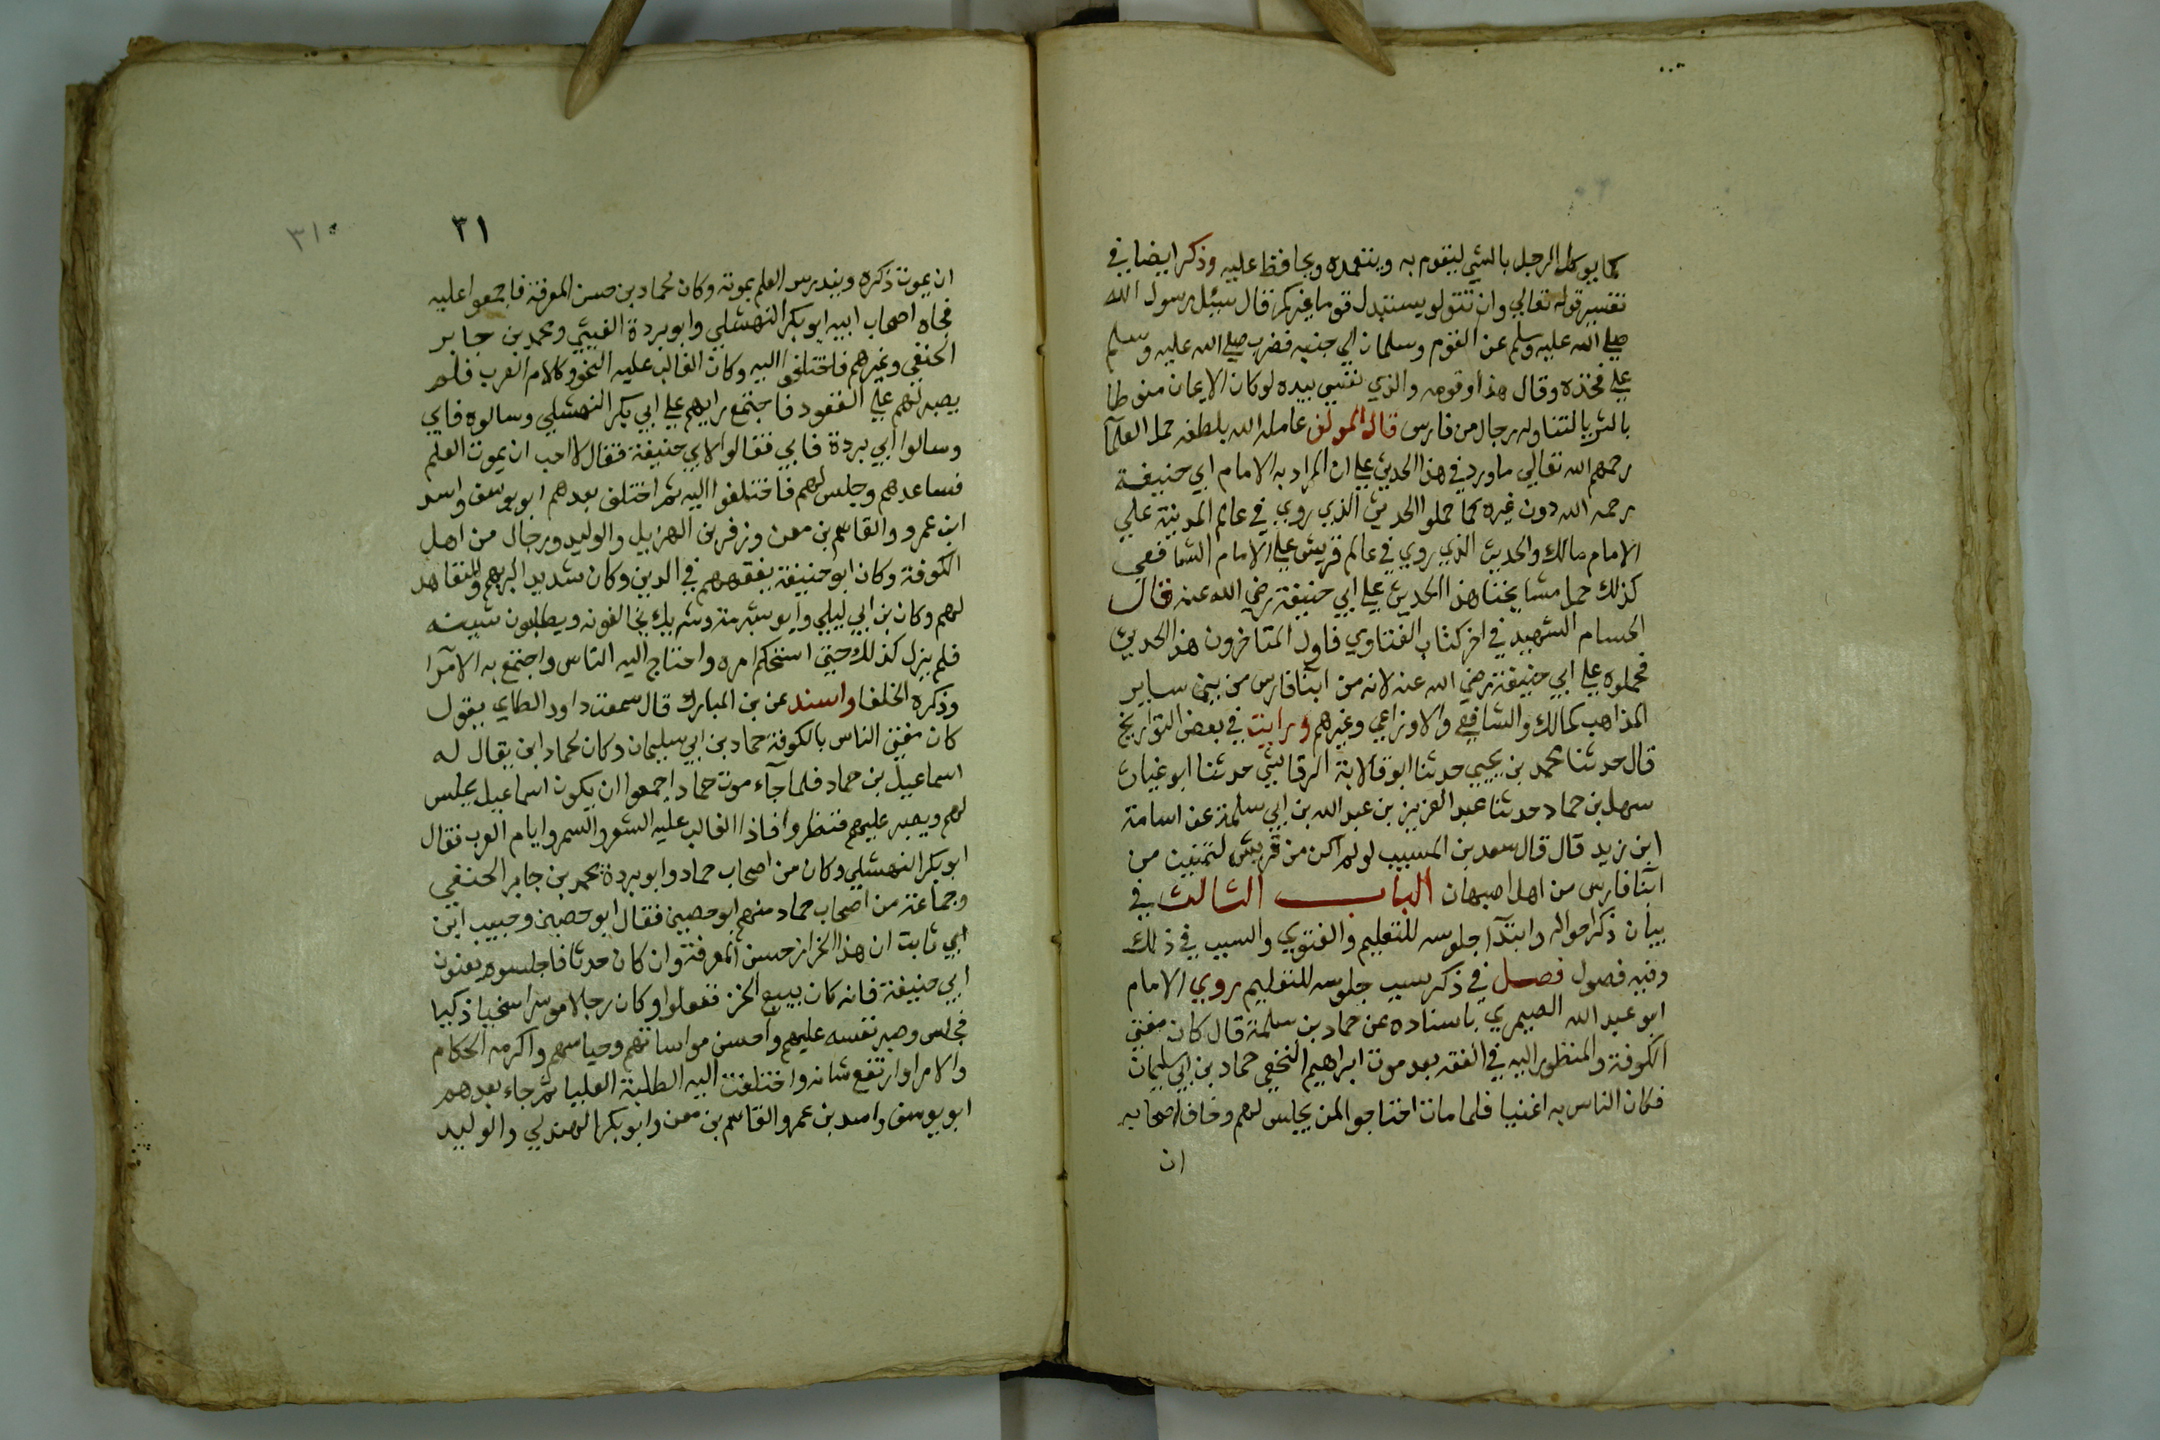 كما يوكل الرجل بالشي ليقوم به ويتعمده ويحافظ عليه وذكر ايضا في
تفسير قوله تعالي وان تتولو يستبدل قوما غيركم قال سئل رسول الله
صلي الله عليه وسلم عن القوم وسلمان الي جنبه فضرب صلي الله عليه وسلم
علي فخذه وقال هذا وقومه والذي نفسي بيده لو كان الايمان منوطا
بالثريا لتناوله رجال من فارس قال المولف عامله الله بلطفه حمل العلمآ
رحمهم الله تعالي ما ورد في هذا الحديث علي ان المراد به الامام ابي حنيفة
رحمه الله دون غيره كما حملوا الحديث الذي روي في عالم المدينة علي
الامام مالك والحديث الذي روي في عالم قريش علي الامام الشافعي
كذلك حمل مشايخنا هذا الحديث علي ابي حنيفة رضي الله عنه قال
الحسام الشهيد في اخر كتاب الفتاوي فاول المتاخرون هذا الحديث
فحملوه علي ابي حنيفة رضي الله عنه لانه من ابنا فارس من بين ساير
المذاهب كمالك والشافعي والاوزاعي وغيرهم ورايت في بعض التواريخ
قال حدثنا محمد بن يحيي حدثنا ابو قلابة الرقاشي حدثنا ابو غياث
سهل بن حماد حدثنا عبد العزيز بن عبد الله بن ابي سلمة عن اسامة
ابن زيد قال قال سعد بن المسيب لو لم اكن من قريش لتمنيت من
ابنا فارس من اهل اصبهان الباب الثالث في
بيان ذكر احواله وابتدآ جلوسه للتعليم والفتوي والسبب في ذلك
وفيه فصول فصل في ذكر سبب جلوسه للتعليم روي الامام
ابو عبد الله الصيمري باسناده عن حماد بن سلمة قال كان مفتي
الكوفة والمنظور اليه في الفقه بعد موت ابراهيم النخعي حماد بن ابي سليمان
فكان الناس به اغنيا فلما مات احتاجوا لمن يجلس لهم وخاف اصحابه
ان
٣١
٣١
ان يموت ذكره ويندرس العلم بموته وكان لحماد بن حسن المعرفة فاجمعوا عليه
فجاه اصحاب ابيه ابو بكر النهشلي وابو بردة العيبي ومحمد بن جابر
الحنفي وغيرهم فاختلفوا اليه وكان الغالب عليه النحو وكلام العرب فلم
يصبر لهم علي القعود فاجتمع رايهم علي ابي بكر النهشلي وسالوه فابي
وسالوا ابي بردة فابي فقالوا لابي حنيفة فقال لا احب ان يموت العلم
فساعدهم وجلس لهم فاختلفوا اليه ثم اختلف بعدهم ابو يوسف واسد
ابن عمرو والقاسم بن معن وزفر بن الهزيل والوليد ورجال من اهل
الكوفة وكان ابو حنيفة يفقههم في الدين وكان شديد البرهم والتعاهد
لهم وكان بن ابي ليلي وابو شبرمة وشريك يخالفونه ويطلبون شينه
فلم يزل كذلك حتي استحكم امره واحتاج اليه الناس واجتمع به الامرآ
وذكره الخلفا واسند عن بن المبارك قال سمعت داود الطاي يقول
كان مفتي الناس بالكوفة حماد بن ابي سليمان وكان لحماد ابن يقال له
اسماعيل بن حماد فلما جآء موت حماد اجمعوا ان يكون اسماعيل يجلس
لهم ويصبر عليهم فنظروا فاذا الغالب عليه الشعر والسمر وايام العرب فقال
ابو بكر النهشلي وكان من اصحاب حماد وابو بردة محمد بن جابر الحنفي
وجماعة من اصحاب حماد منهم ابو حصين فقال ابو حصين وحبيب ابن
ابي ثابت ان هذا الخزاز حسن المعرفة وان كان حدثا فاجلسوه يعنون
ابي حنيفة فانه كان يبيع الخز ففعلوا وكان رجلا موسرا سخيا ذكيا
فجلس وصبر نفسه عليهم واحسن مواساتهم وحباسهم واكرمه الحكام
والامرا وارتفع شانه واختلفت اليه الطلبة العليا ثم جاء بعدهم
ابو يوسف واسد بن عمرو والقاسم بن معن وابو بكر الهذلي والوليد